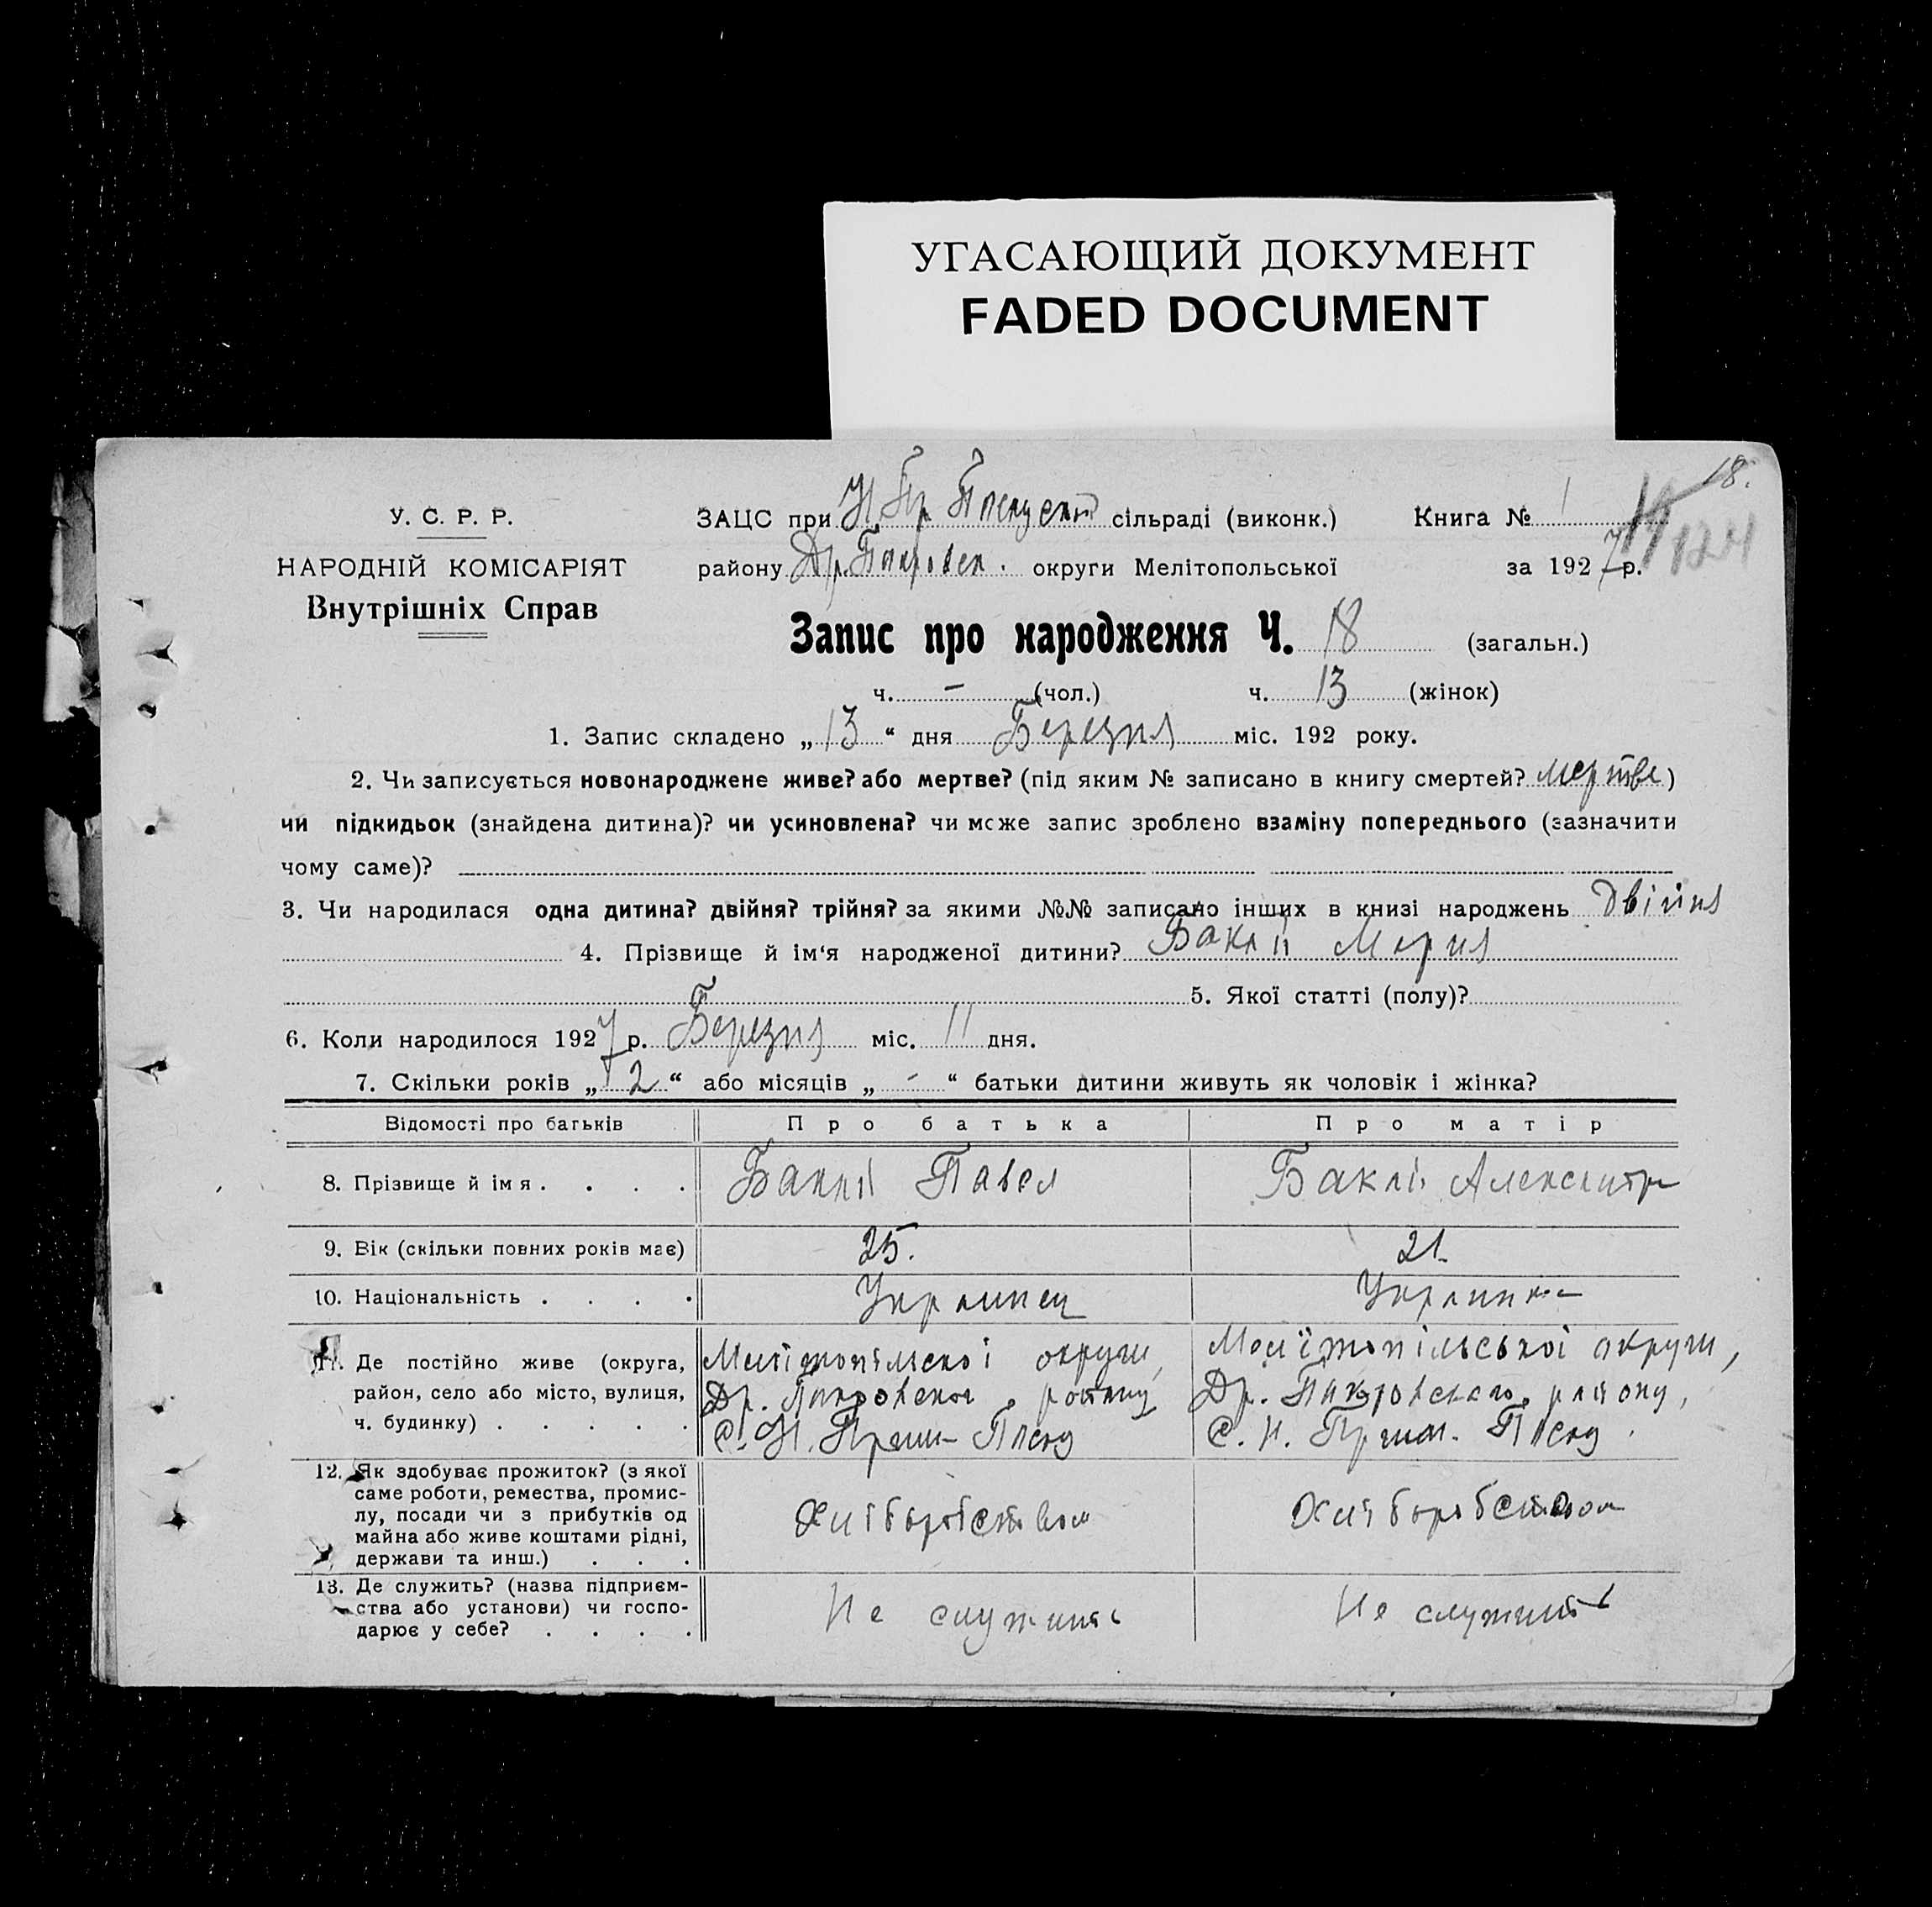 УГАСАЮЩИЙ ДОКУМЕНТ
FADED DOCUMENT
18.
У. С. Р. Р.
НАРОДНІЙ КОМІСАРІЯТ
Внутрішніх Справ
ЗАЦС при Н. Пр. сільраді (виконк.) Книга № 1
124
району Др. Покровск. округи Мелітопольської за 1927 р.
Запис про народження Ч. 18 (загальн.)
ч. - (чол.) ч. 13 (жінок)
1. Запис складено „13“ дня Березня міс. 192 року.
2. Чи записується новонароджене живе? або мертве? (під яким № записано в книгу смертей? мертве)
чи підкидьок (знайдена дитина)? чи усиновлена? чи може запис зроблено взаміну попереднього (зазначити
чому саме)?
3. Чи народилася одна дитина? двійня? трійня? за якими №№ записано інших в книзі народжень двійня
4. Прізвище й ім‘я народженої дитини? Баклій Мария
5. Якої статті (полу)?
6. Коли народилося 1927 р. Березня міс. 11 дня.
7. Скільки років „2“ або місяців „-“ батьки дитини живуть як чоловік і жінка?
Відомості про батьків Про батька Про матір
8. Прізвище й імя . . . . Баклій Павел Баклій Александра
9. Вік (скільки повних років має) 25. 21.
10. Національність . . . . Украинец Украинка
11. Де постійно живе (округа, Мелітопільскої округи, Мелїтопільської округи,
район, село або місто, вулиця, Др. Покровского району Др. Покровского району,
ч. будинку) . . . . . С. Н. С. Н.
12. Як здобуває прожиток? (з якої
саме роботи, ремества, промис-
лу, посади чи з прибутків од Хліборобством Хліборобством
майна або живе коштами рідні,
держави та инш.) . . .
13. Де служить? (назва підприєм-
ства або установи) чи госпо- Не служить Не служить
дарює у себе? . . . .